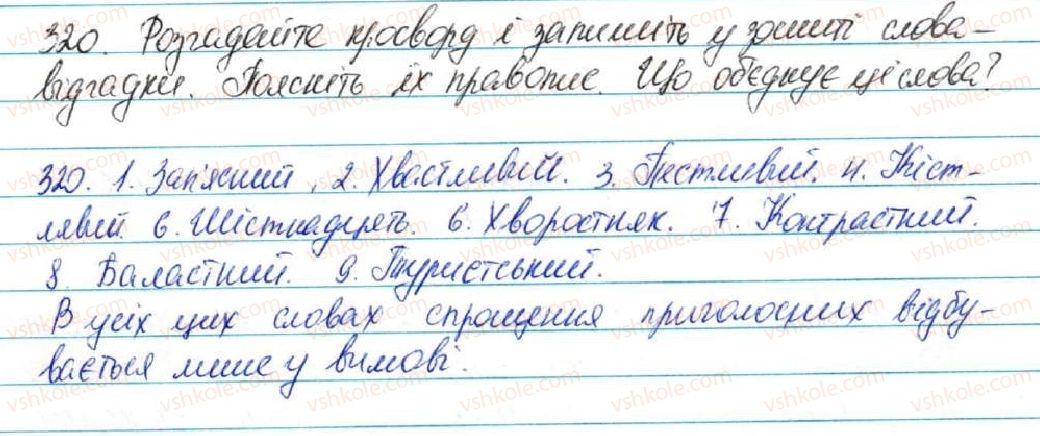 320. Розгадайте кросворд і запишіть у зошиті слова-
відгадки. Поясніть їх правопис. Що об'єднує ці слова?
320. 1. Зап'ясний, 2. Хвастливий. 3. Пестливий. 4. Кіст-
лявий 6. Шістнадцять. 6. Хворостняк. 7. Контрастний.
8. Баластний. 9. Туристський.
В усіх цих словах спрощення приголосних відбу-
вається лише у вимові.